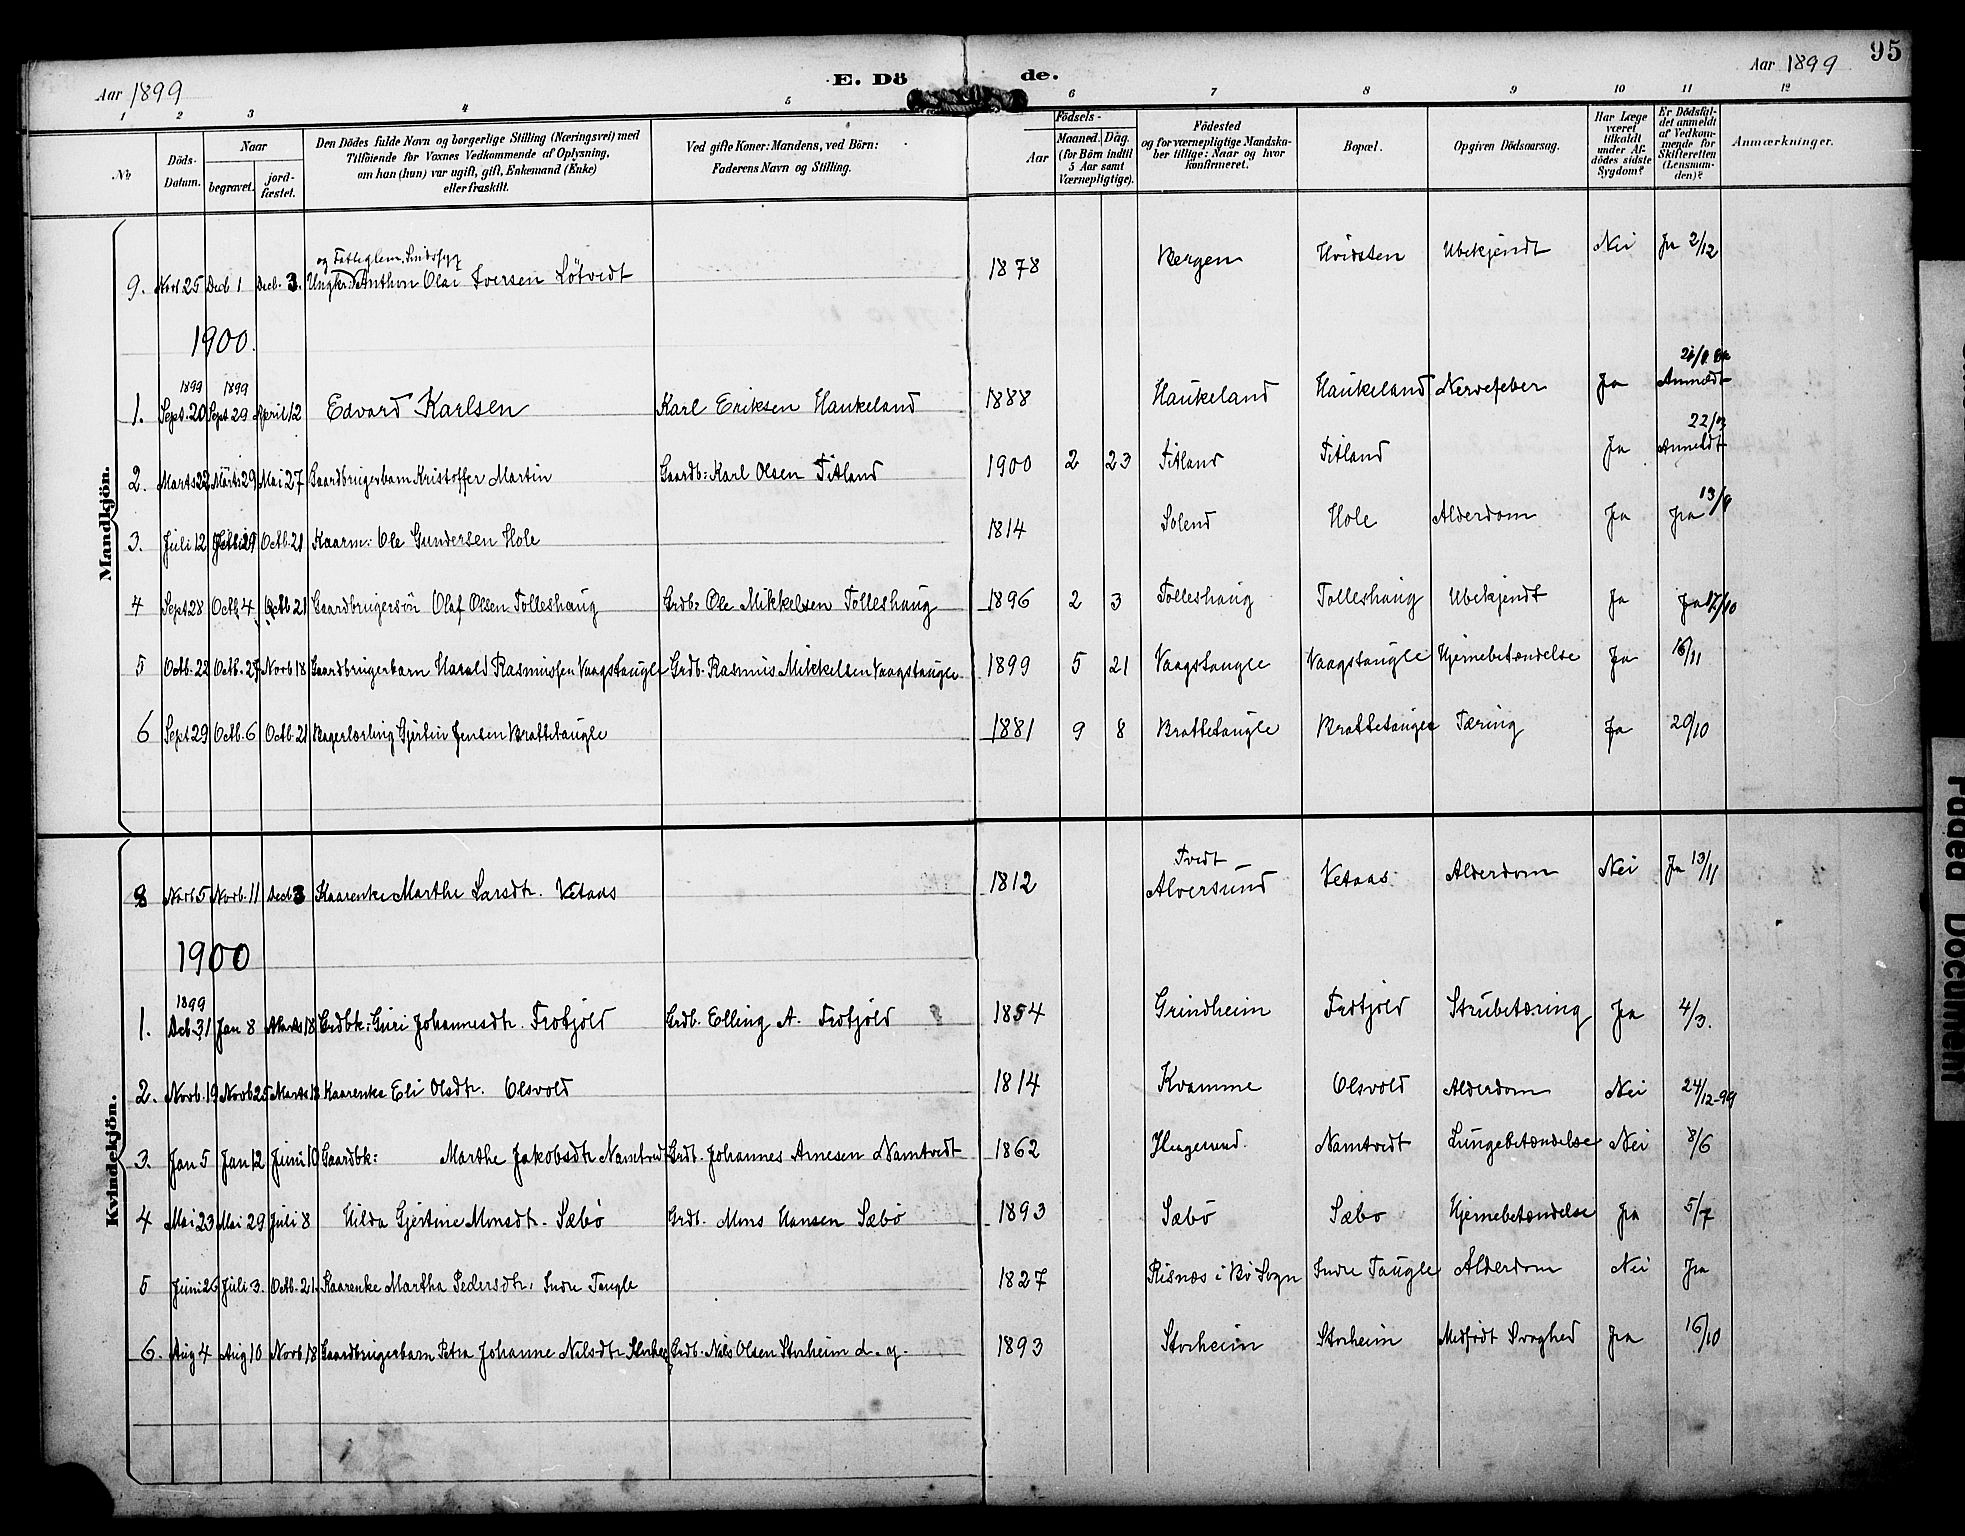 95
Aar 1899 E. Dö de. Aar 1899
1 2 3 4 5 6 7 8 9 10 11 12
No
Döds-Datum.
Naar
begravet.
jord-fæstet.
Den Dödes fulde Navn og borgerlige Stilling (Næringsvei) med
Tilföiende for Voxnes Vedkommende af Oplysning,
om han (hun) var ugift, gift, Enkemand (Enke)
eller fraskilt.
Ved gifte Koner: Mandens, ved Börn:
Faderens Navn og Stilling.
Födsels-
Aar
Maaned. Dag.
(for Börn indtil
5 Aar samt
Værnepligtige).
Födested
og for værnepligtige Mandska-
ber tillige: Naar og hvor
konfirmeret.
Bopæl.
Opgiven Dödsaarsag.
Har Læge
været
tilkaldt
under Af-
dödes sidste
Sygdom?
Er Dödsfal-
det anmeldt
af Vedkom-
mende for
Skifteretten
(Lensman-
den)?
Anmærkninger.
Mandkjön.
og Fattiglem. Sindssyg
9. Novb 25 Decb 1 Decb. 3. Ungkr: Anthon Olai Iversen Lötvedt 1878 Bergen Hvidsten Ubekjendt Nei Ja 2/12
1900.
1899 1899
1. Sept. 20 Sept 29 April 12 Edvard Karlsen Karl Eriksen Haukeland 1888 Haukeland Haukeland Nervefeber Ja Anmeldt
2. Marts 22 Marts 29 Mai 27 Gaardbrugerbarn Kristoffer Martin Gaardb: Karl Olsen Titland 1900 2 23 Titland Titland Ja Anmeldt 22/3
3. Juli 12 Juli 29 Octb. 21 Kaarm: Ole Gundersen Hole 1814 Solend Hole Alderdom Ja Ja
4 Sept 28 Octb 4 Octb 21 Gaardbrugersön Olaf Olsen Tolleshaug Grdb: Ole Mikkelsen Tolleshaug 1896 2 3 Tolleshaug Tolleshaug Ubekjendt Ja Ja 17/10
5 Octb. 22 Octb. 27 Novb 18 Gaardbrugerbarn Harald Rasmussen Vaagstaugle Grdb. Rasmus Mikkelsen Vaagstaugle 1899 5 21 Vaagstaugle Vaagstaugle Hjernebetændelse Ja 16/11
6 Sept 29 Octb. 6 Octb. 21 Bagerlærling Gjertin Jensen Brattetaugle 1881 9 8 Brattetaugle Brattetaugle Tæring Ja 20/10
Kvindekjön.
Tvedt
8 Novb 5 Novb. 11 Decb 3 Kaarenke Marthe Larsdtr. Vetaas 1812 Alversund Vetaas Alderdom Nei Ja 13/11
1900
1899
1. Decb. 31 Jan 8 Marts 18 Grdbk: Guri Johannesdtr. Frotjold Grdb. Elling A. Frotjold 1854 Grindheim Frotjold Strubetæring Ja 4/3.
2. Novb. 19 Novb 25 Marts 18 Kaarenke Eli Olsdtr. Olsvold 1814 Kvamme Olsvold Alderdom Nei 24/12-99
3. Jan 5 Jan 12 Juni 10 Gaardbk: Marthe Jakobsdtr Namtvedt Grdb. Johannes Arnesen Namtvedt 1862 Namtvedt Lungebetændelse Nei 8/6
4 Mai 23 Mai 29 Juli 8 Hilda Gjertine Monsdtr. Sæbö Grdb. Mons Hansen Sæbö 1893 Sæbö Sæbö Hjernebetændelse Ja 5/7
5 Juni 26 Juli 3. Octb. 21. Kaarenke Martha Pedersdtr. Indre Taugle 1827 Risnæs i Bö Sogn Indre Taugle Alderdom Nei Ja
6. Aug 4 Aug 10 Novb 18 Gaardbrugerbarn Petra Johanne Nilsdtr Grdb. Nils Olsen Storheim d. y. 1893 Storheim Storheim Medfödt Svaghed Ja 16/10
Faded Document